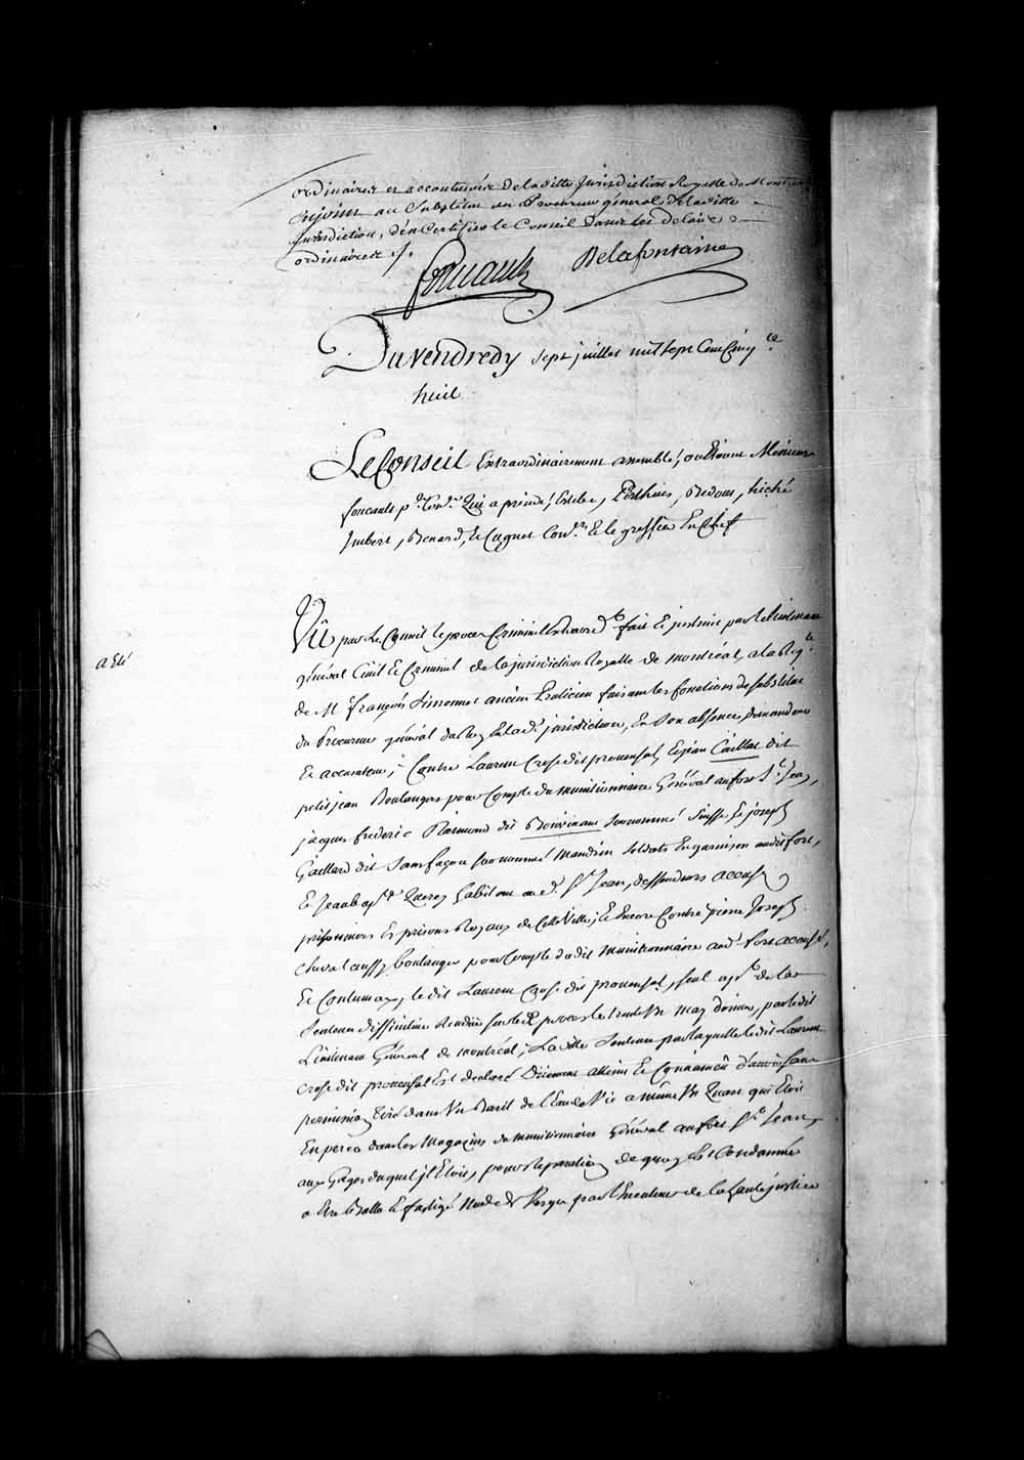 ordinaires et accoutumés De ladite Jurisdiction Royalle de Montreal
Enjoint au Substitut du Procureur général De ladite
Jurisdiction, d'en Certifier le Conseil Dans les Delais
ordinaires /.
foucault Delafontaine
Du vendredy Sept juillet mil Sept Cent Cinq.te
huit
Le Conseil Extraordinairement assemblé, ou Etoient Messieurs
foucault p.er Con.er Qui a presidé, Estebe, Perthuis, Bedout, hiché
Imbert, Benard, et Cugnet Con.ers Et le greffier En Chef
a Eté
Vû par Le Conseil le procès Criminel Extraord.re fait Et instruit par le Lieutenant
général Civil Et Criminel de la jurisdiction Royalle de montréal, a la Req.te
de M.e françois Simonnet ancien Praticien faisant les fonctions de Substitut
du Procureur général du Roy En lad. jurisdiction, En Son absence, Demandeur
Et accusateur; Contre Laurent Crose dit provensal, Et jean Caillat dit
petit jean Boulangers pour Compte du munitionnaire Général au fort S.t Jean,
jacques frederic Raimond dit Bouvinau Surnommé Suisse, Et joseph
Gaillard dit Sans façon Surnommé Mandrin Soldats En garnison audit fort,
Et Jean bap.te habitant aud. S.t Jean, deffendeurs accusés
prisonniers Es prisons Royaux de Cette Ville; Et Encore Contre pierre Joseph
Cheval aussy boulanger pour Compte dudit munitionnaire aud. fort accusé,
Et Contumax, le dit Laurent Crose dit provensal, Seul ap.t de la
Sentence Diffinitive Rendüe Sur led. procès le trente Un May dernier, par le dit
Lieutenant Général de montréal; Ladite Sentence par laquelle ledit Laurent
Crose dit provensal Est declaré Düement atteint Et Convaincu d'avoir Sans
permission tiré dans Un Baril de l'Eau de Vie a même Un Quart qui Etoit
En perce dans les Magazins du munitionnaire Général au fort S.t Jean,
aux Gages duquel jl Etoit, pour Reparation de quoy Est Condamné
a Etre Battu Et fustigé Nud de Verges par l'Executeur de la haute justice